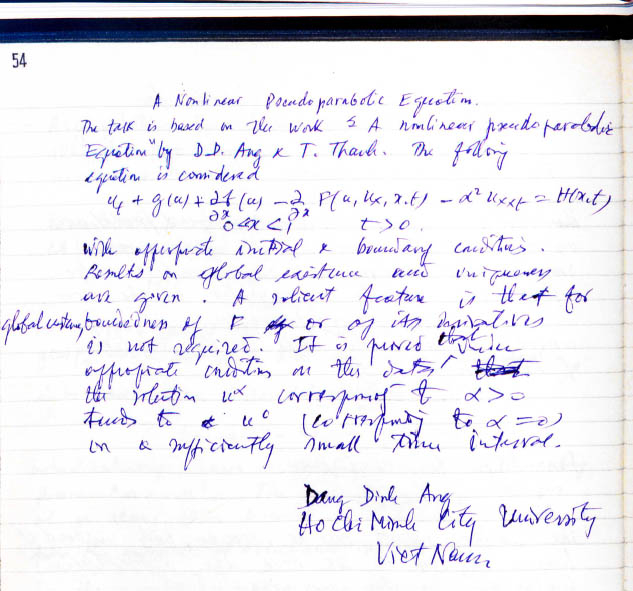 54
A Nonlinear Pseudoparabolic Equation.
The talk is based on the work "A nonlinear pseudoparabolic
Equation" by D.D. Ang & T. Thanh. The following
equation is considered
u_t + g(u) + ∂/∂x f(u) − ∂/∂x F(u, u_x, x, t) − α² u_xxt = H(x,t)
0 < x < 1 t > 0.
with appropriate initial & boundary conditions.
Results on global existence and uniqueness
are given. A salient feature is that for
global existence, boundedness of F or of its derivatives
is not required. It is proved that under
appropriate conditions on the data,
the solution u^α corresponding to α > 0
tends to u^0 (corresponding to α = 0)
in a sufficiently small time interval.
Dang Dinh Ang
Ho Chi Minh City University
Viet Nam